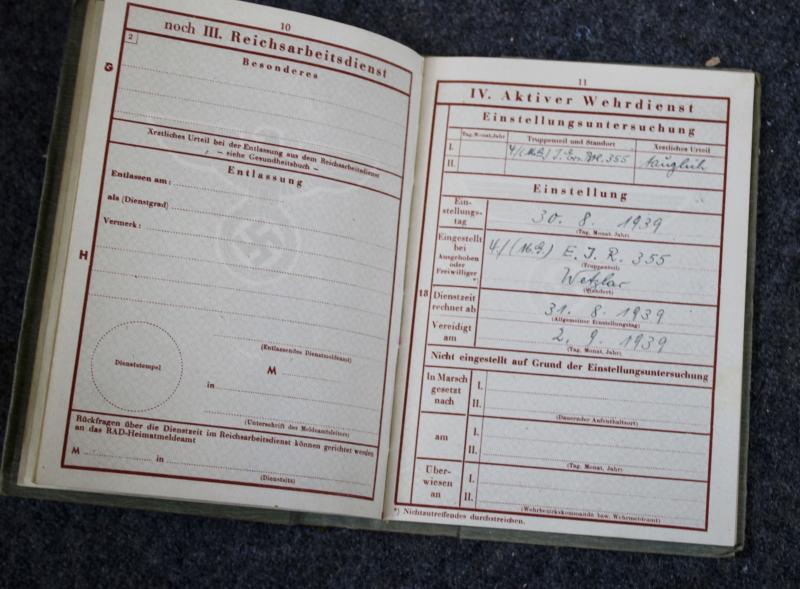 10
noch III. Reichsarbeitsdienst
2
Besonderes
G
Ärztliches Urteil bei der Entlassung aus dem Reichsarbeitsdienst
– siehe Gesundheitsbuch –
Entlassung
Entlassen am:
als (Dienstgrad)
Vermerk:
H
(Entlassendes Dienstmeldeamt)
Dienststempel
M
in
(Unterschrift des Meldeamtsleiters)
Rückfragen über die Dienstzeit im Reichsarbeitsdienst können gerichtet werden
an das RAD-Heimatmeldeamt
M in
(Dienstsitz)
11
IV. Aktiver Wehrdienst
Einstellungsuntersuchung
Tag, Monat, Jahr Truppenteil und Standort Ärztliches Urteil
I. 4/(M.G.) J. Ers. Btl. 355 tauglich
II.
Einstellung
Ein-
stellungs-
tag
30. 8. 1939
(Tag, Monat, Jahr)
Eingestellt
bei
Ausgehoben
oder
Freiwilliger
4./(M.G.) E. J. R. 355
(Truppenteil)
Wetzlar
(Standort)
18
Dienstzeit
rechnet ab
31. 8. 1939
(Allgemeiner Einstellungstag)
Vereidigt
am
2. 9. 1939
(Tag, Monat, Jahr)
Nicht eingestellt auf Grund der Einstellungsuntersuchung
In Marsch
gesetzt
nach
I.
II.
(Dauernder Aufenthaltsort)
am
I.
II.
(Tag, Monat, Jahr)
Über-
wiesen
an
I.
II.
(Wehrbezirkskommando bzw. Wehrmeldeamt)
*) Nichtzutreffendes durchstreichen.